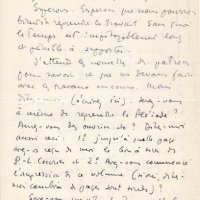 Espérons. Espérons que nous pourrons
bientôt reprendre le travail. Sans quoi
le temps est impitoyablement long
et pénible à supporter.
J'attends de nouvelles du patron
pour savoir ce que nous devons faire
avec les travaux en cours. Mais
Dites-moi (écrire ici) : Avez-vous
à même de reprendre la Pléiade ?
Avez-vous des ouvriers de ? Dites-moi
aussi ceci : 1) jusqu'à quelle page
avez-vous reçu de moi le bon à tirer de
P.-L. Courier et 2) Avez-vous commencé
l'impression de ce volume (si oui, dites-
moi combien de pages sont tirées) ?